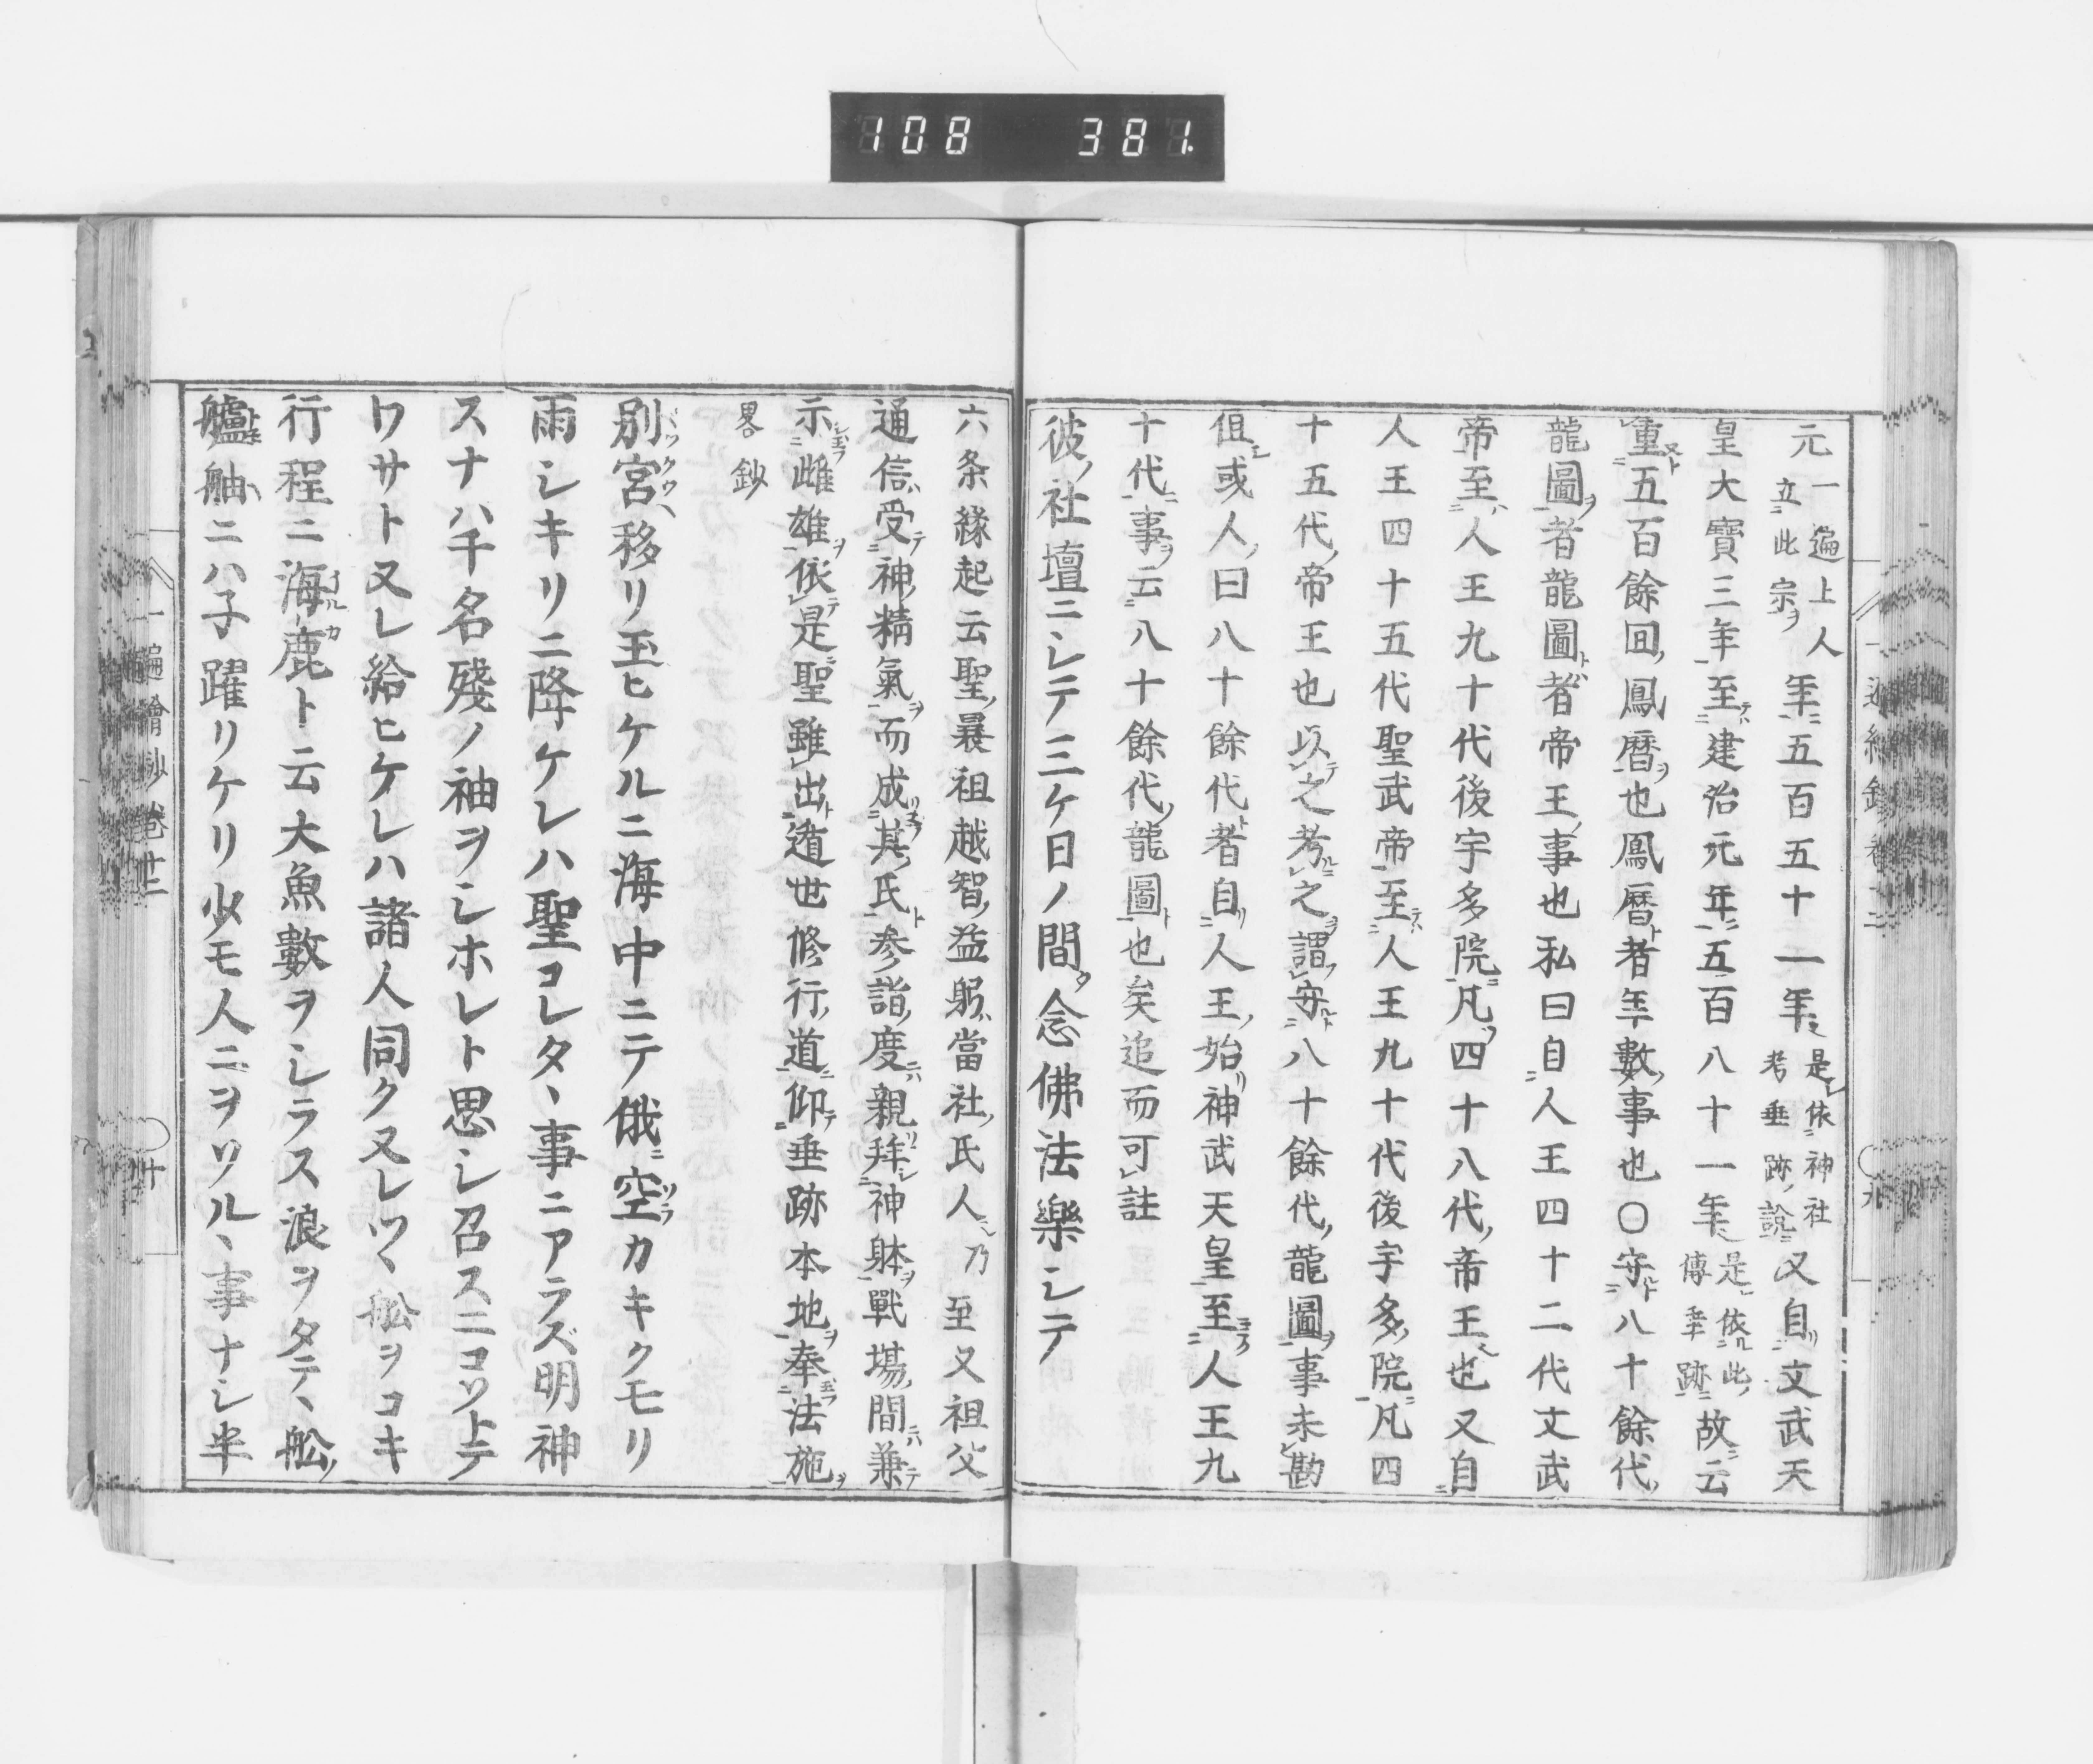 108 381.
元一遍上人立此宗年五百五十一年是依神社考垂跡説又自文武天
皇大寶三年至建治元年五百八十一年是依此傳垂跡故云
重五百餘囘鳳暦也鳳暦者年數事也〇守八十餘代
龍圖者龍圖者帝王事也私曰自人王四十二代文武
帝至人王九十代後宇多院凡四十八代帝王也又自
人王四十五代聖武帝至人王九十代後宇多院凡四
十五代帝王也以之考之謂守八十餘代龍圖事未勘
但或人曰八十餘代者自人王始神武天皇至人王九
十代事云八十餘代龍圖也矣追而可註
彼社壇ニシテ三ケ日ノ間念佛法樂シテ
六条縁起云聖曩祖越智益躬當社氏人乃至又祖父
通信受神精氣而成其氏參詣度親拜神躰戰場間兼
示雌雄依是聖雖出遁世修行道仰垂跡本地奉法施
畧鈔
別宮移リ玉ヒケルニ海中ニテ俄空カキクモリ
雨シキリニ降ケレハ聖コレタヽ事ニアラズ明神
スナハチ名殘ノ袖ヲシホレト思シ召スニコソトテ
ワサト又レ給ヒケレハ諸人同ク又レツヽ舩ヲコキ
行程ニ海鹿ト云大魚數ヲシラス浪ヲタテヽ舩
艫舳ニハ子躍リケリ少モ人ニヲソルヽ事ナシ半
一遍繪鈔卷十二 九
一遍繪鈔卷十二 十